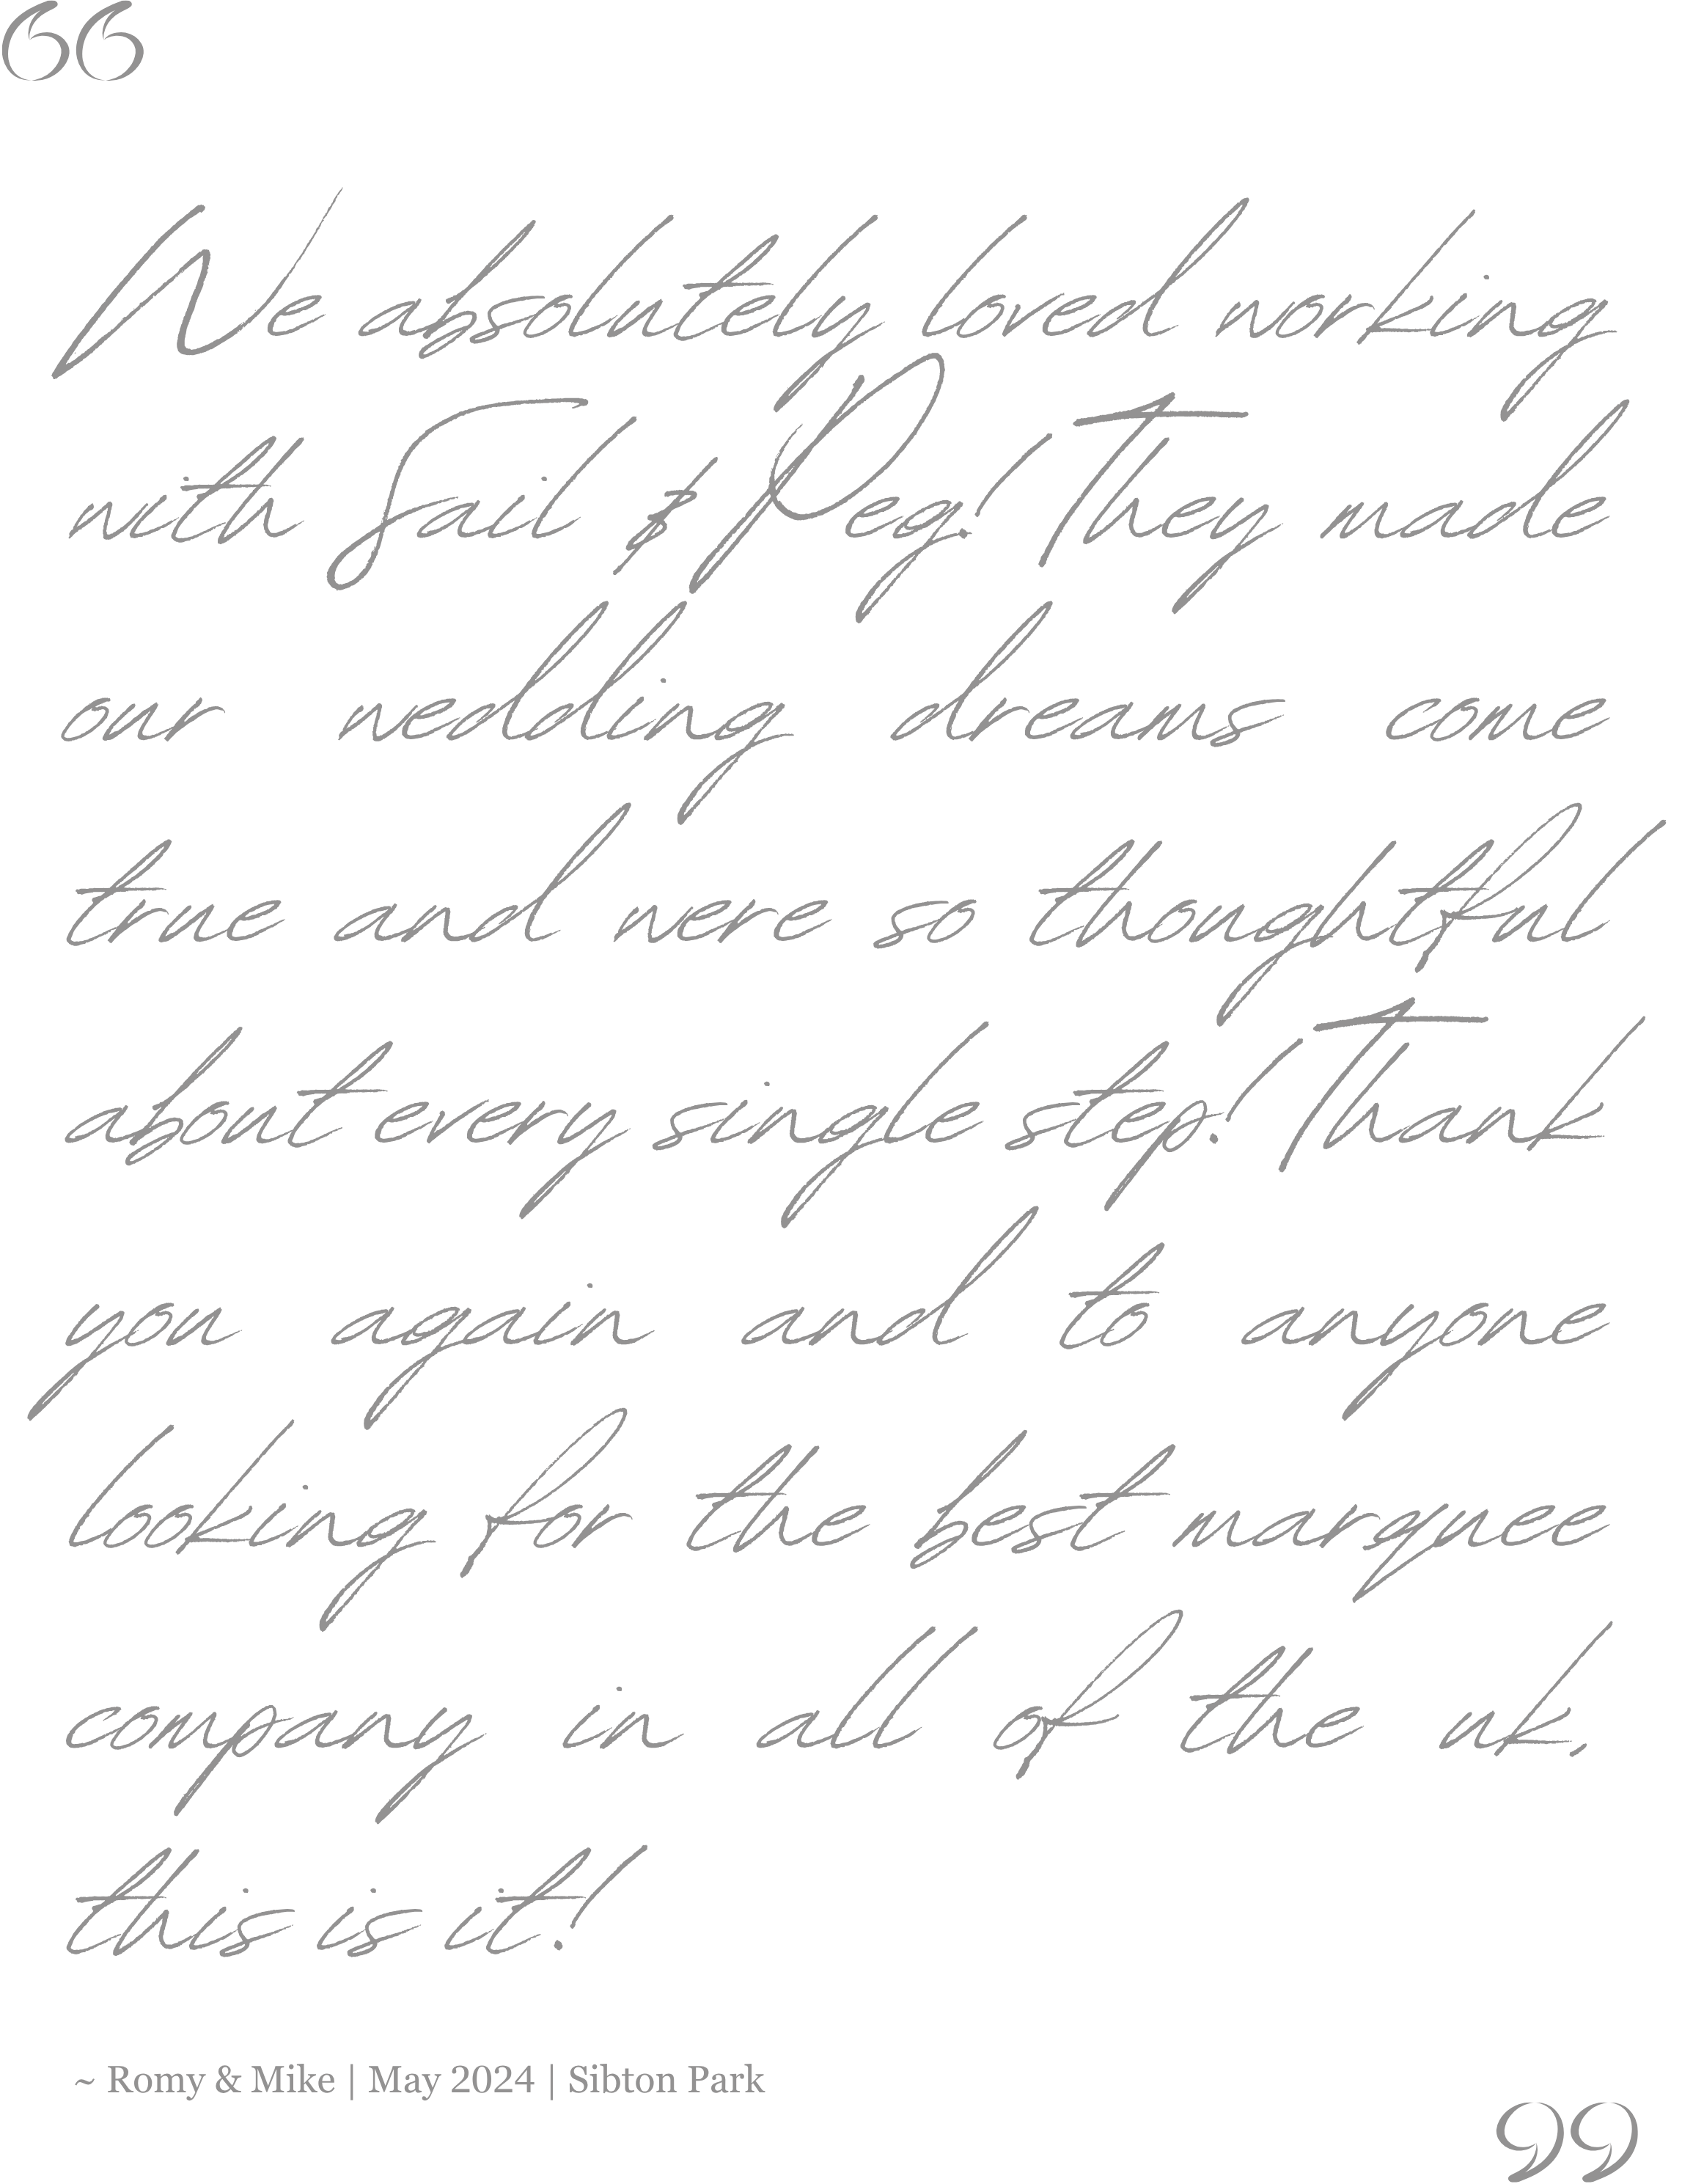 “
We absolutely loved working
with Sail & Peg! They made
our wedding dreams come
true and were so thoughtful
about every single step! Thank
you again and to anyone
looking for the best marquee
company in all of the uk,
this is it!
~ Romy & Mike | May 2024 | Sibton Park
”